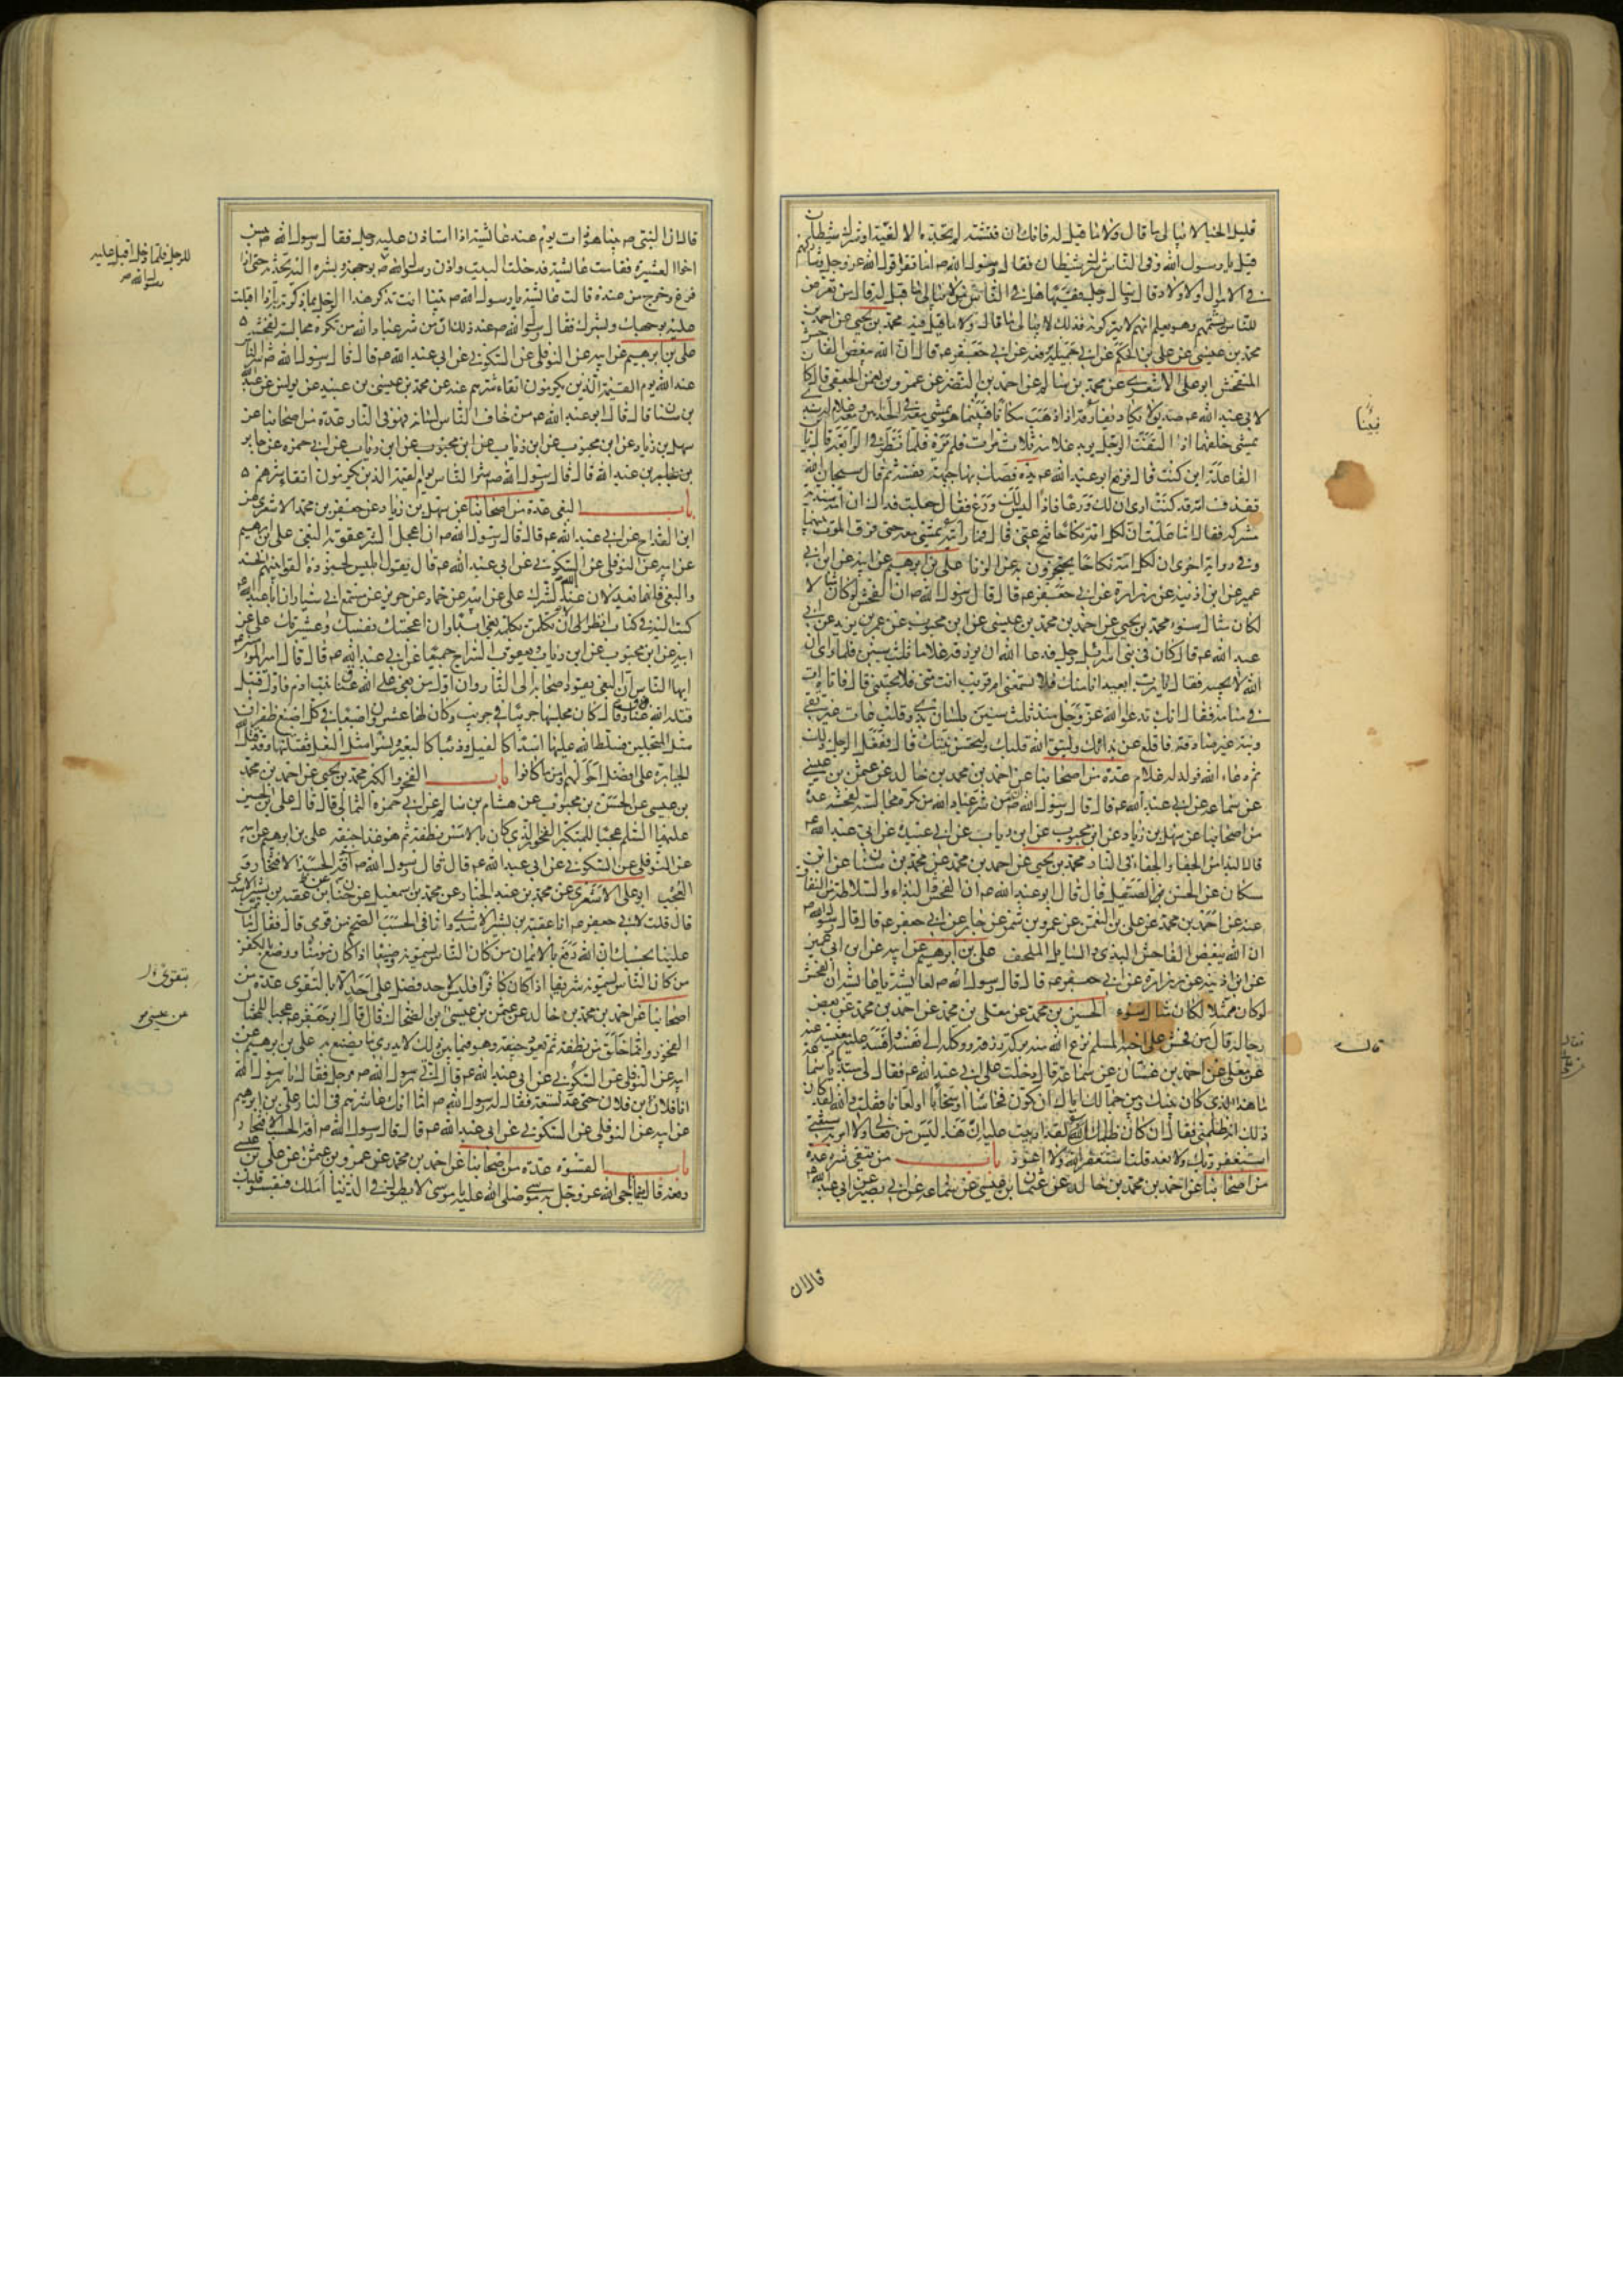 قليل الحياء لا يبالي ما قال ولا ما قيل له فانك ان فتشته لم تجده الا لغية او شرك شيطان
قيل يا رسول الله وفي الناس شرك شيطان فقال رسول الله ص اما تقرء قول الله عز وجل وشاركهم
في الاموال والاولاد قال وسال رجل فقيها هل في الناس من لا يبالي ما قيل له قال من تعرض
للناس يشتمهم وهو يعلم انهم لا يتركونه فذلك لا يبالي ما قال ولا ما قيل فيه محمد بن يحيى عن احمد بن
محمد بن عيسى عن علي بن الحكم عن ابي جميلة يرفعه عن ابي جعفر ع قال ان الله يبغض الفاحش
المتفحش ابو علي الاشعري عن محمد بن سالم عن احمد بن النضر عن عمرو بن نعمن الجعفي قال كان
لابي عبد الله ع صديق لا يكاد يفارقه اذا ذهب مكانا فبينما هو يمشي معه في الحذائين ومعه غلام له سندي
يمشي خلفهما اذا التفت الرجل يريد غلامه ثلاث مرات فلم يره فلما نظر في الرابعة قال يا
ابن الفاعلة اين كنت قال فرفع ابو عبد الله ع يده فصك بها جبهة نفسه ثم قال سبحان الله
تقذف امه قد كنت ارى ان لك ورعا فاذا ليس لك ورع فقال جعلت فداك ان امه سندية
مشركة فقال اما علمت ان لكل امة نكاحا تنح عني قال فما رايته يمشي معه حتى فرق الموت بينهما
وفي رواية اخرى ان لكل امة نكاحا يحتجزون به عن الزنا علي بن ابرهيم عن ابيه عن ابن ابي
عمير عن ابن اذينة عن زرارة عن ابي جعفر ع قال قال رسول الله ص ان الفحش لو كان مثالا
لكان مثال سوء محمد بن يحيى عن احمد بن محمد بن عيسى عن ابن محبوب عن عمر بن يزيد عن ابي
عبد الله ع قال كان في بني اسرائيل رجل فدعا الله ان يرزقه غلاما ثلث سنين فلما راى ان
الله لا يجيبه فقال يا رب ابعيد انا منك فلا تسمعني ام قريب انت مني فلا تجيبني قال فاتاه ات
في منامه فقال انك تدعو الله عز وجل منذ ثلث سنين بلسان بذي وقلب عات غير تقي
ونية غير صادقة فاقلع عن بذائك وليتق الله قلبك ولتحسن نيتك قال ففعل الرجل ذلك
ثم دعا الله فولد له غلام عدة من اصحابنا عن احمد بن محمد بن خالد عن عثمن بن عيسى
عن سماعة عن ابي عبد الله ع قال قال رسول الله ص ان من شر عباد الله من تكره مجالسته لفحشه عدة
من اصحابنا عن سهل بن زياد عن ابن محبوب عن ابن رياب عن ابي عبيدة عن ابي عبد الله ع
قال البذاء من الجفاء والجفاء في النار محمد بن يحيى عن احمد بن محمد عن محمد بن سنان عن ابن
مسكان عن الحسن الصيقل قال قال ابو عبد الله ع ان الفحش والبذاء والسلاطة من النفاق
عنه عن احمد بن محمد عن علي بن النعمن عن عمرو بن شمر عن جابر عن ابي جعفر ع قال قال رسول الله ص
ان الله يبغض الفاحش البذي والسايل الملحف علي بن ابرهيم عن ابيه عن ابن ابي عمير
عن ابن اذينة عن زرارة عن ابي جعفر ع قال قال رسول الله ص لعايشة يا عايشة ان الفحش
لو كان ممثلا لكان مثال سوء الحسين بن محمد عن معلى بن محمد عن احمد بن محمد عن بعض
رجاله قال من فحش على اخيه المسلم نزع الله منه بركة رزقه ووكله الى نفسه وافسد عليه معيشته عنه
عن معلى عن احمد بن غسان عن سماعة قال دخلت على ابي عبد الله ع فقال لي مبتدئا يا سماعة
ما هذا الذي كان بينك وبين جمالك اياك ان تكون فحاشا او سخابا او لعانا فقلت والله لقد كان
ذلك انه ظلمني فقال ان كان ظلمك لقد اربيت عليه ان هذا ليس من فعالي ولا امر به شيعتي
استغفر ربك ولا تعد قلت استغفر الله ولا اعود باب من يتقى شره عدة
من اصحابنا عن احمد بن محمد بن خالد عن عثمان بن عيسى عن سماعة عن ابي بصير عن ابي عبد الله ع
قال ان
بينا
قال
قال ان النبي ص بينا هو ذات يوم عند عائشة اذا استاذن عليه رجل فقال رسول الله ص بئس
اخو العشيرة فقامت عائشة فدخلت البيت واذن رسول الله ص بوجهه وبشره اليه يحدثه حتى اذا
فرغ وخرج من عنده قالت عائشة يا رسول الله ص بينا انت تذكر هذا الرجل بما ذكرته به اذا اقبلت
عليه بوجهك وبشرك فقال رسول الله ص عند ذلك ان من شر عباد الله من تكره مجالسته لفحشه
علي بن ابرهيم عن ابيه عن النوفلي عن السكوني عن ابي عبد الله ع قال قال رسول الله ص شر الناس
عند الله يوم القيمة الذين يكرمون اتقاء شرهم عنه عن محمد بن عيسى بن عبيد عن يونس عن عبد الله
بن سنان قال قال ابو عبد الله ع من خاف الناس لسانه فهو في النار عدة من اصحابنا عن
سهل بن زياد عن ابن محبوب عن ابن رياب عن ابن محبوب عن ابن رياب عن ابي حمزه عن جابر
بن عبد الله قال قال رسول الله ص شر الناس يوم القيمة الذين يكرمون اتقاء شرهم
باب البغي عدة من اصحابنا عن سهل بن زياد عن جعفر بن محمد الاشعري عن
ابن القداح عن ابي عبد الله ع قال قال رسول الله ص ان اعجل الشر عقوبة البغي علي بن ابرهيم
عن ابيه عن النوفلي عن السكوني عن ابي عبد الله ع قال يقول ابليس لجنوده القوا بينهم الحسد
والبغي فانهما يعدلان عند الله الشرك علي عن ابيه عن حماد عن حريز عن مسمع ابي سيار ان ابا عبد الله ع
كتب اليه في كتاب انظر الى ان لا تكلمن بكلمة بغي ابدا وان اعجبتك نفسك وعشيرتك علي عن
ابيه عن ابن محبوب عن ابن رياب ويعقوب السراج جميعا عن ابي عبد الله ع قال قال امير المؤمنين ع
ايها الناس ان البغي يقود اصحابه الى النار وان اول من بغى على الله عناق بنت ادم فاول قتيل
قتله الله عناق وكان مجلسها جريبا في جريب وكان لها عشرون اصبعا في كل اصبع ظفران
مثل المنجلين فسلط الله عليها اسدا كالفيل وذئبا كالبعير ونسرا مثل البغل فقتلنها وقد قتل الله
الجبابرة على افضل احوالهم وامن ما كانوا باب الفخر والكبر محمد بن يحيى عن احمد بن محمد
بن عيسى عن الحسن بن محبوب عن هشام بن سالم عن ابي حمزة الثمالي قال قال علي بن الحسين
عليهما السلم عجبا للمتكبر الفخور الذي كان بالامس نطفة ثم هو غدا جيفة علي بن ابرهيم عن ابيه
عن النوفلي عن السكوني عن ابي عبد الله ع قال قال رسول الله ص آفة الحسب الافتخار و
العجب ابو علي الاشعري عن محمد بن عبد الجبار عن محمد بن اسمعيل عن حنان عن عقبة بن بشير الاسدي
قال قلت لابي جعفر ع انا عقبة بن بشير الاسدي وانا في الحسب الضخم من قومي قال فقال ما تمن
علينا بحسبك ان الله رفع بالايمان من كان الناس يسمونه وضيعا اذا كان مؤمنا ووضع بالكفر
من كان الناس يسمونه شريفا اذا كان كافرا فليس لاحد فضل على احد الا بالتقوى عدة من
اصحابنا عن احمد بن محمد بن خالد عن عثمن بن عيسى بن الضحاك قال قال ابو جعفر ع عجبا للمختال
الفخور وانما خلق من نطفة ثم يعود جيفة وهو فيما بين ذلك لا يدري ما يصنع به علي بن ابرهيم عن
ابيه عن النوفلي عن السكوني عن ابي عبد الله ع قال اتى رسول الله ص رجل فقال يا رسول الله
انا فلان ابن فلان حتى عد تسعة فقال له رسول الله ص اما انك عاشرهم في النار علي بن ابرهيم
عن ابيه عن النوفلي عن السكوني عن ابي عبد الله ع قال قال رسول الله ص آفة الحسب الافتخار
باب القسوة عدة من اصحابنا عن احمد بن محمد عن عمرو بن عثمن عن علي بن عيسى
رفعه قال فيما ناجى الله عز وجل به موسى صلى الله عليه يا موسى لا يطول في الدنيا املك فيقسو قلبك
للرجل فلما دخل اقبل عليه
رسول الله ص
بتقوى الله
عن عيسى